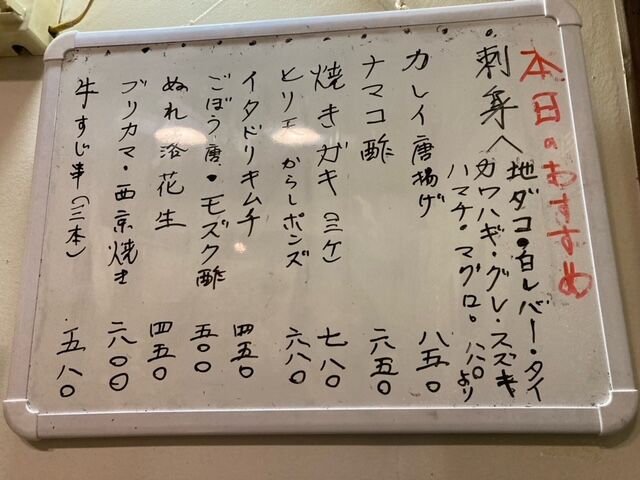 本日のおすすめ
刺身へ地ダコ・白レバー・タイ
カワハギ・グレ・スズキ
ハマチ・マグロ。八八〇より
カレイ唐揚げ 八五〇
ナマコ酢 六五〇
焼きガキ(三ケ) 七八〇
とり天からしポンズ 六八〇
イタドリキムチ 四五〇
ごぼう唐・モズク酢 五〇〇
ぬれ落花生 四五〇
ブリカマ・西京焼き 八〇〇
牛すじ串(三本) 五八〇